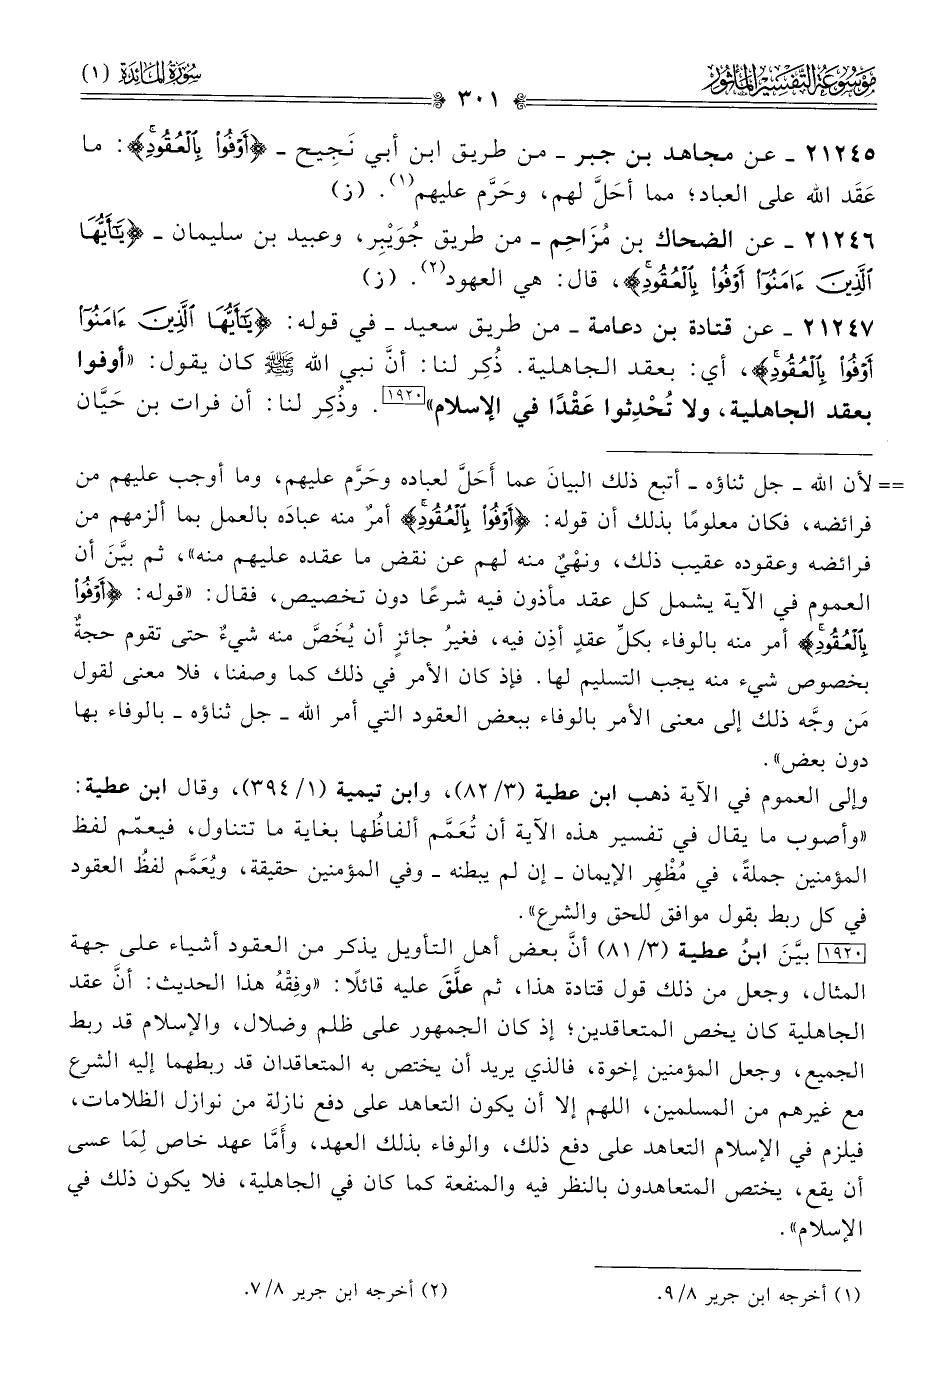 مَوْسُوعَة التَّفْسِير المَأْثُور
٣٠١
سُورَة المَائِدَة (١)
٢١٢٤٥ ـ عن مجاهد بن جبر ـ من طريق ابن أبي نَجِيح ـ ﴿أَوْفُوا۟ بِٱلْعُقُودِۚ﴾: ما
عَقَد الله على العباد؛ مما أحَلَّ لهم، وحَرَّم عليهم(١). (ز)
٢١٢٤٦ ـ عن الضحاك بن مُزَاحِم ـ من طريق جُوَيْبِر، وعبيد بن سليمان ـ ﴿يَـٰٓأَيُّهَا
ٱلَّذِينَ ءَامَنُوٓا۟ أَوْفُوا۟ بِٱلْعُقُودِۚ﴾، قال: هي العهود(٢). (ز)
٢١٢٤٧ ـ عن قتادة بن دعامة ـ من طريق سعيد ـ في قوله: ﴿يَـٰٓأَيُّهَا ٱلَّذِينَ ءَامَنُوٓا۟
أَوْفُوا۟ بِٱلْعُقُودِۚ﴾، أي: بعقد الجاهلية. ذُكِر لنا: أنَّ نبي الله ﷺ كان يقول: «أوفوا
بعقد الجاهلية، ولا تُحْدِثوا عَقْدًا في الإسلام»[١٩٢٠]. وذُكِر لنا: أن فرات بن حَيَّان
== لأن الله ـ جل ثناؤه ـ أتبع ذلك البيانَ عما أَحَلَّ لعباده وحَرَّم عليهم، وما أوجب عليهم من
فرائضه، فكان معلومًا بذلك أن قوله: ﴿أَوْفُوا۟ بِٱلْعُقُودِۚ﴾ أمرٌ منه عبادَه بالعمل بما ألزمهم من
فرائضه وعقوده عقيب ذلك، ونهْيٌ منه لهم عن نقض ما عقده عليهم منه»، ثم بيَّنَ أن
العموم في الآية يشمل كل عقد مأذون فيه شرعًا دون تخصيص، فقال: «قوله: ﴿أَوْفُوا۟
بِٱلْعُقُودِۚ﴾ أمر منه بالوفاء بكلِّ عقدٍ أذِن فيه، فغيرُ جائزٍ أن يُخَصَّ منه شيءٌ حتى تقوم حجةٌ
بخصوص شيء منه يجب التسليم لها. فإذ كان الأمر في ذلك كما وصفنا، فلا معنى لقول
مَن وجَّه ذلك إلى معنى الأمر بالوفاء ببعض العقود التي أمر الله ـ جل ثناؤه ـ بالوفاء بها
دون بعض».
وإلى العموم في الآية ذهب ابن عطية (٣/ ٨٢)، وابن تيمية (١/ ٣٩٤)، وقال ابن عطية:
«وأصوب ما يقال في تفسير هذه الآية أن تُعَمَّم ألفاظُها بغاية ما تتناول، فيعمّم لفظ
المؤمنين جملةً، في مُظْهِر الإيمان ـ إن لم يبطنه ـ وفي المؤمنين حقيقة، ويُعَمَّم لفظُ العقود
في كل ربط بقول موافق للحق والشرع».
[١٩٢٠] بيَّنَ ابنُ عطية (٣/ ٨١) أنَّ بعض أهل التأويل يذكر من العقود أشياء على جهة
المثال، وجعل من ذلك قول قتادة هذا، ثم علَّقَ عليه قائلًا: «وفِقْهُ هذا الحديث: أنَّ عقد
الجاهلية كان يخص المتعاقدين؛ إذ كان الجمهور على ظلم وضلال، والإسلام قد ربط
الجميع، وجعل المؤمنين إخوة، فالذي يريد أن يختص به المتعاقدان قد ربطهما إليه الشرع
مع غيرهم من المسلمين، اللهم إلا أن يكون التعاهد على دفع نازلة من نوازل الظلامات،
فيلزم في الإسلام التعاهد على دفع ذلك، والوفاء بذلك العهد، وأَمَّا عهد خاص لِمَا عسى
أن يقع، يختص المتعاهدون بالنظر فيه والمنفعة كما كان في الجاهلية، فلا يكون ذلك في
الإسلام».
(١) أخرجه ابن جرير ٨/ ٩.
(٢) أخرجه ابن جرير ٨/ ٧.